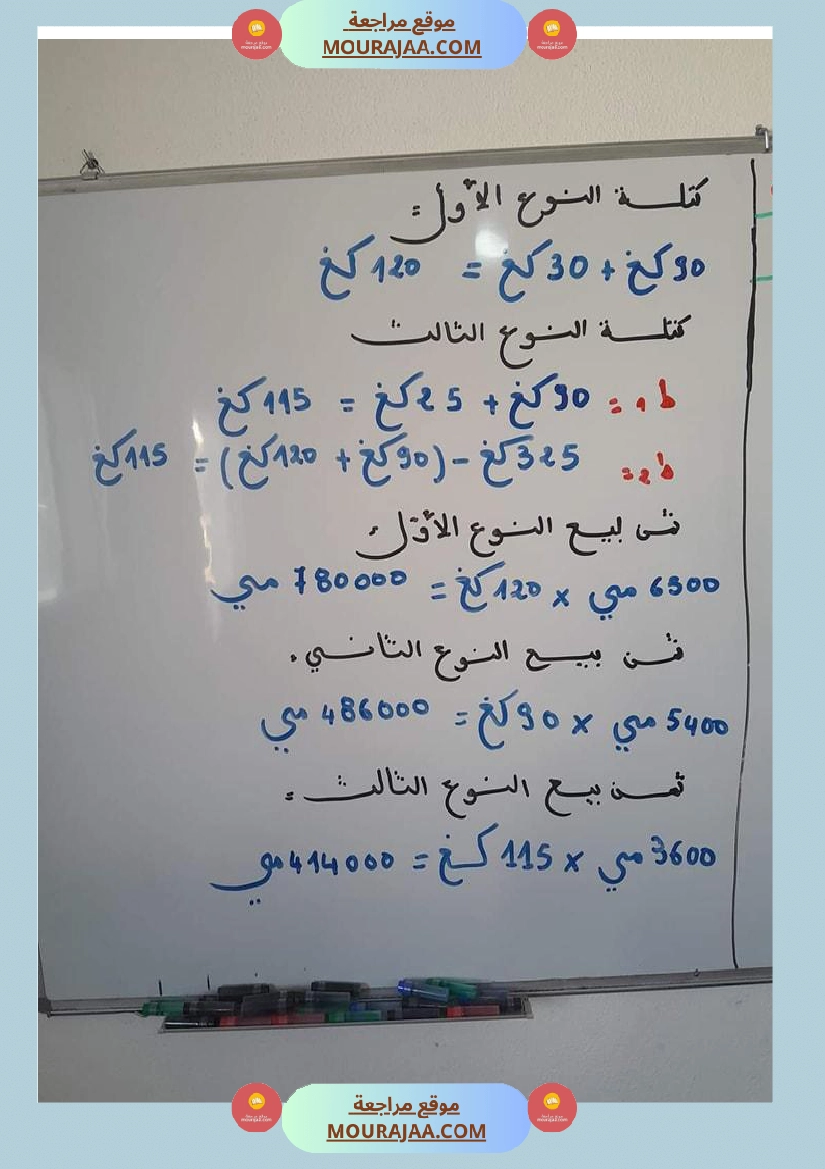 موقع مراجعة
MOURAJAA.COM
كتلة النوع الأول =
90كغ + 30كغ = 120كغ
كتلة النوع الثالث
ط1 = 90كغ + 25كغ = 115كغ
ط2 = 325كغ - (90كغ + 120كغ) = 115كغ
ثمن بيع النوع الأول
6500 مي x 120كغ = 780000 مي
ثمن بيع النوع الثاني =
5400 مي x 90كغ = 486000 مي
ثمن بيع النوع الثالث =
3600 مي x 115 كغ = 414000 مي
موقع مراجعة
MOURAJAA.COM